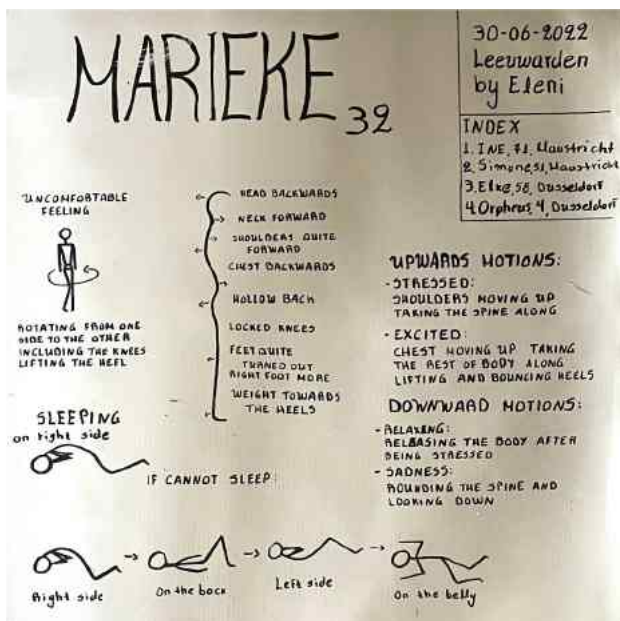 MARIEKE 32
30-06-2022
Leeuwarden
by Eleni
INDEX
1. INE, 71, Maastricht
2. Simone, 51, Maastricht
3. Elke, 58, Dusseldorf
4. Orpheus, 4, Dusseldorf
UNCOMFORTABLE
FEELING
ROTATING FROM ONE
SIDE TO THE OTHER
INCLUDING THE KNEES
LIFTING THE HEEL
HEAD BACKWARDS
NECK FORWARD
SHOULDERS QUITE
FORWARD
CHEST BACKWARDS
HOLLOW BACK
LOCKED KNEES
FEET QUITE
TURNED OUT
RIGHT FOOT MORE
WEIGHT TOWARDS
THE HEELS
UPWARDS MOTIONS:
- STRESSED:
SHOULDERS MOVING UP
TAKING THE SPINE ALONG
- EXCITED:
CHEST MOVING UP TAKING
THE REST OF BODY ALONG
LIFTING AND BOUNCING HEELS
DOWNWARD MOTIONS:
- RELAXING:
RELEASING THE BODY AFTER
BEING STRESSED
- SADNESS:
ROUNDING THE SPINE AND
LOOKING DOWN
SLEEPING
on right side
IF CANNOT SLEEP:
Right side
On the back
Left side
On the belly